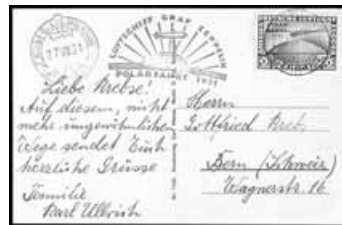 LUFTSCHIFF GRAF ZEPPELIN
POLARFAHRT 1931
Liebe Krebse!
Auf diesem, nicht
mehr ungewöhnlichen
Wege sendet Euch
herzliche Grüsse
Familie
Karl Ullrich
Herrn
Gottfried Krebs
Bern (Schweiz)
Wagnerstr. 16